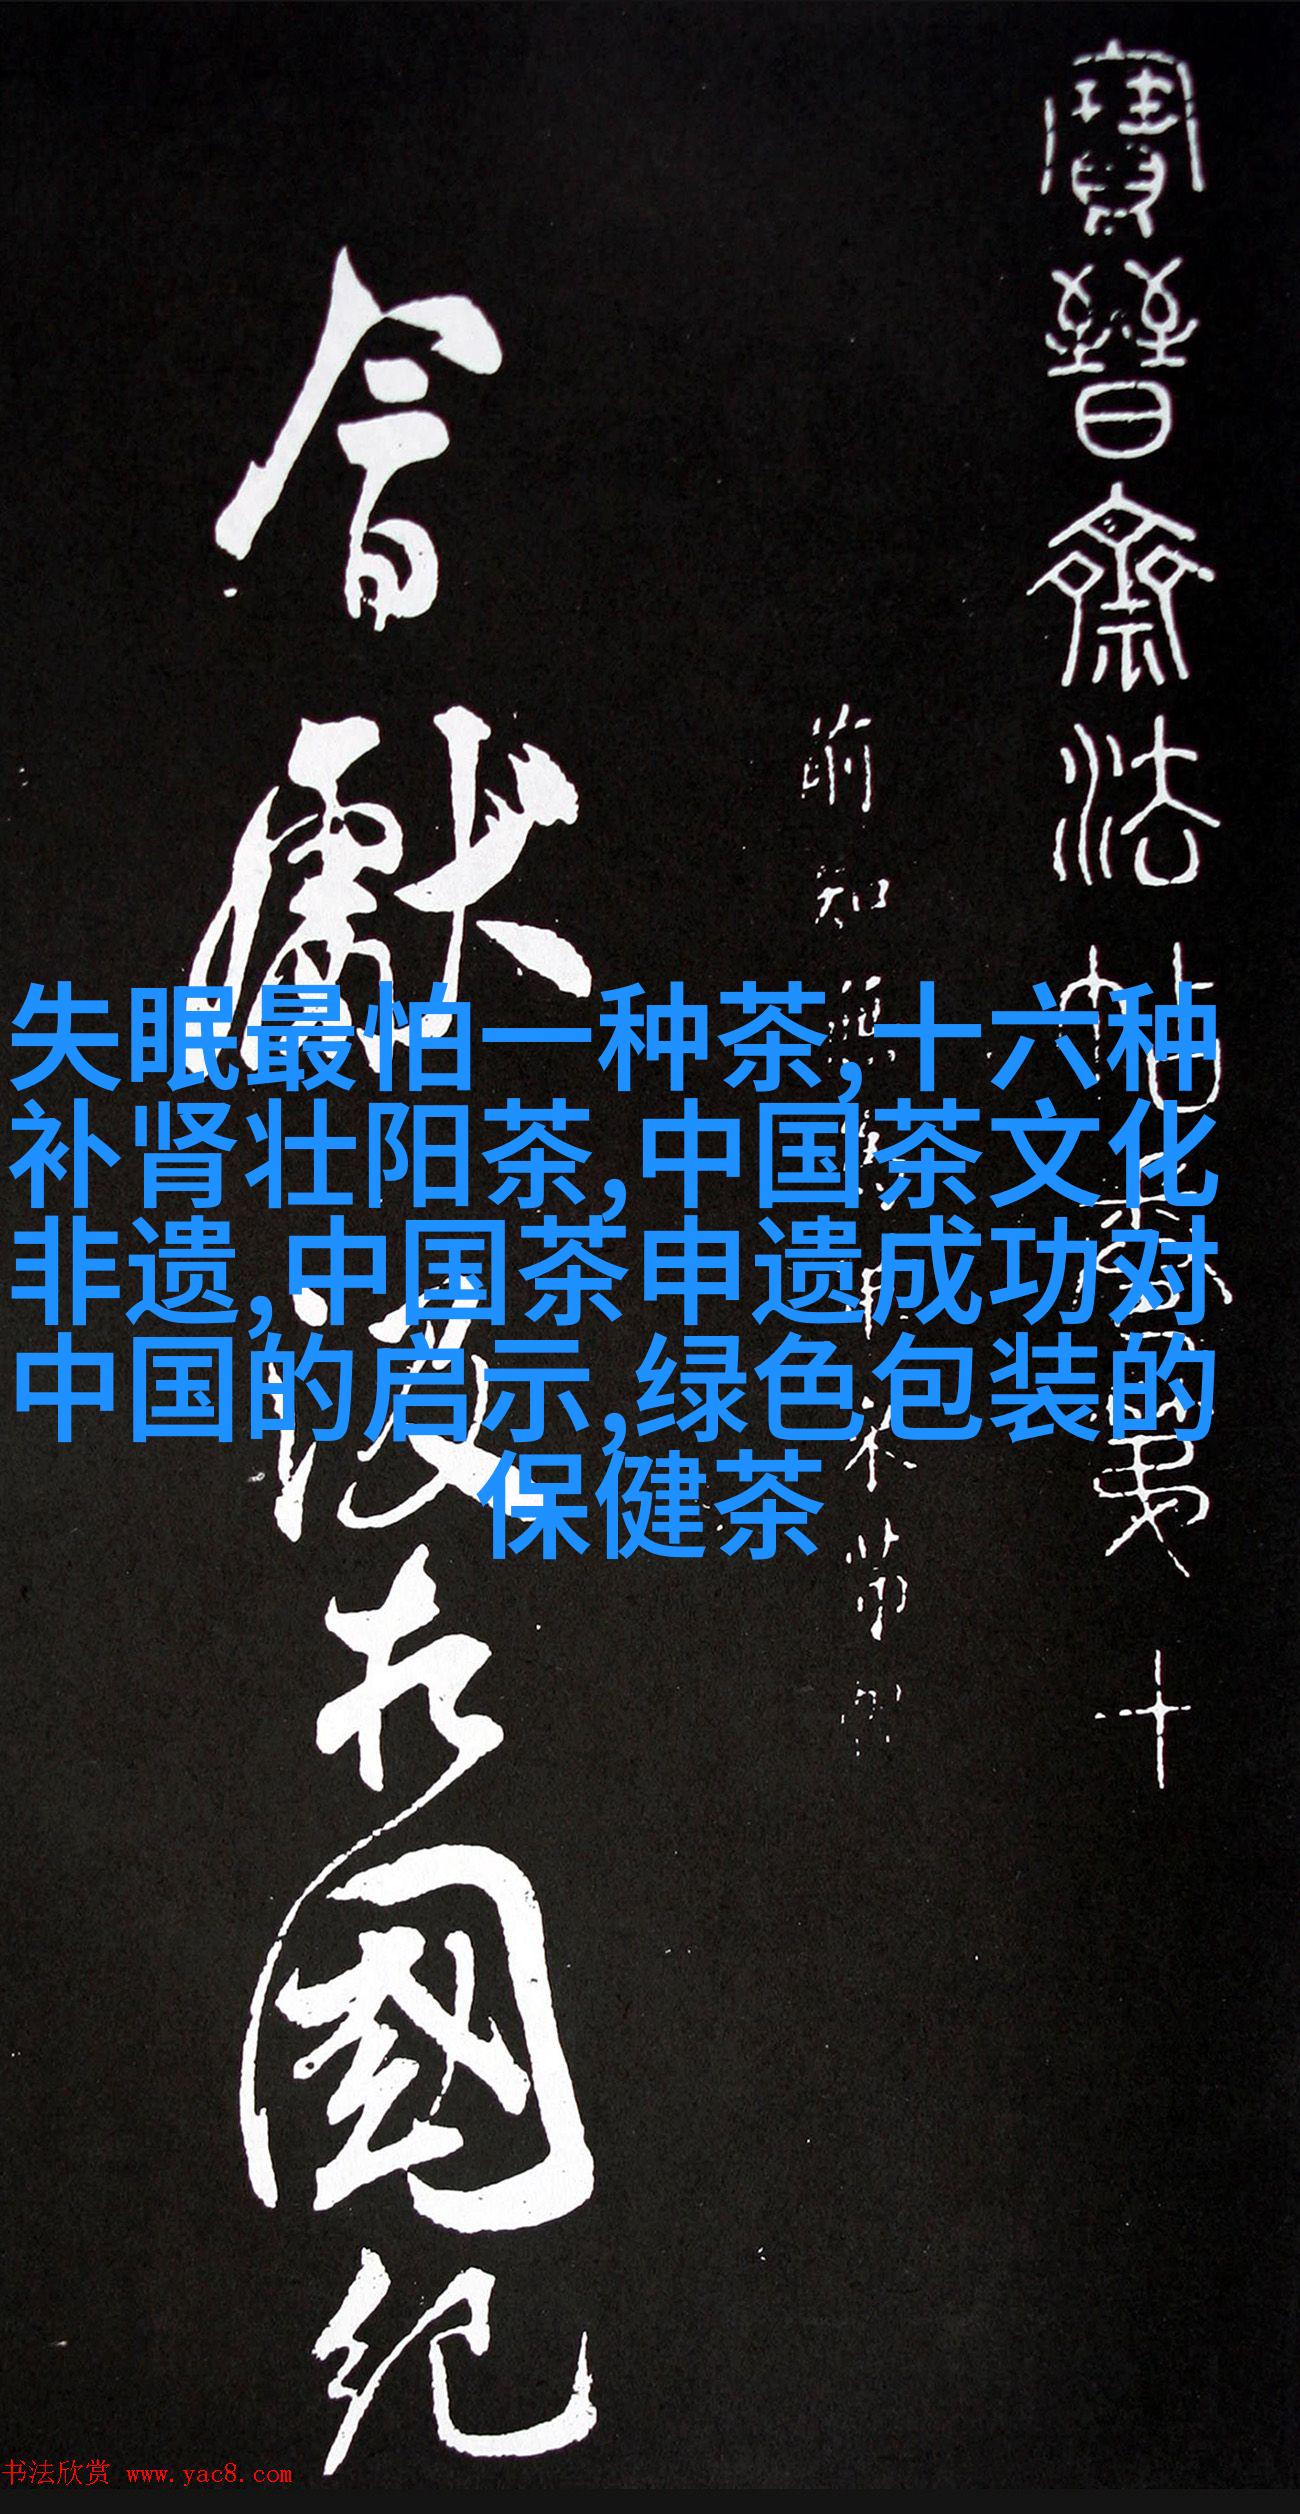 寶晉齋法帖卷第十
前知
米芾
獻
國紀
失眠最怕一种茶,十六种
补肾壮阳茶,中国茶文化
非遗,中国茶申遗成功对
中国的启示,绿色包装的
保健茶
书法欣赏 www.yac8.com